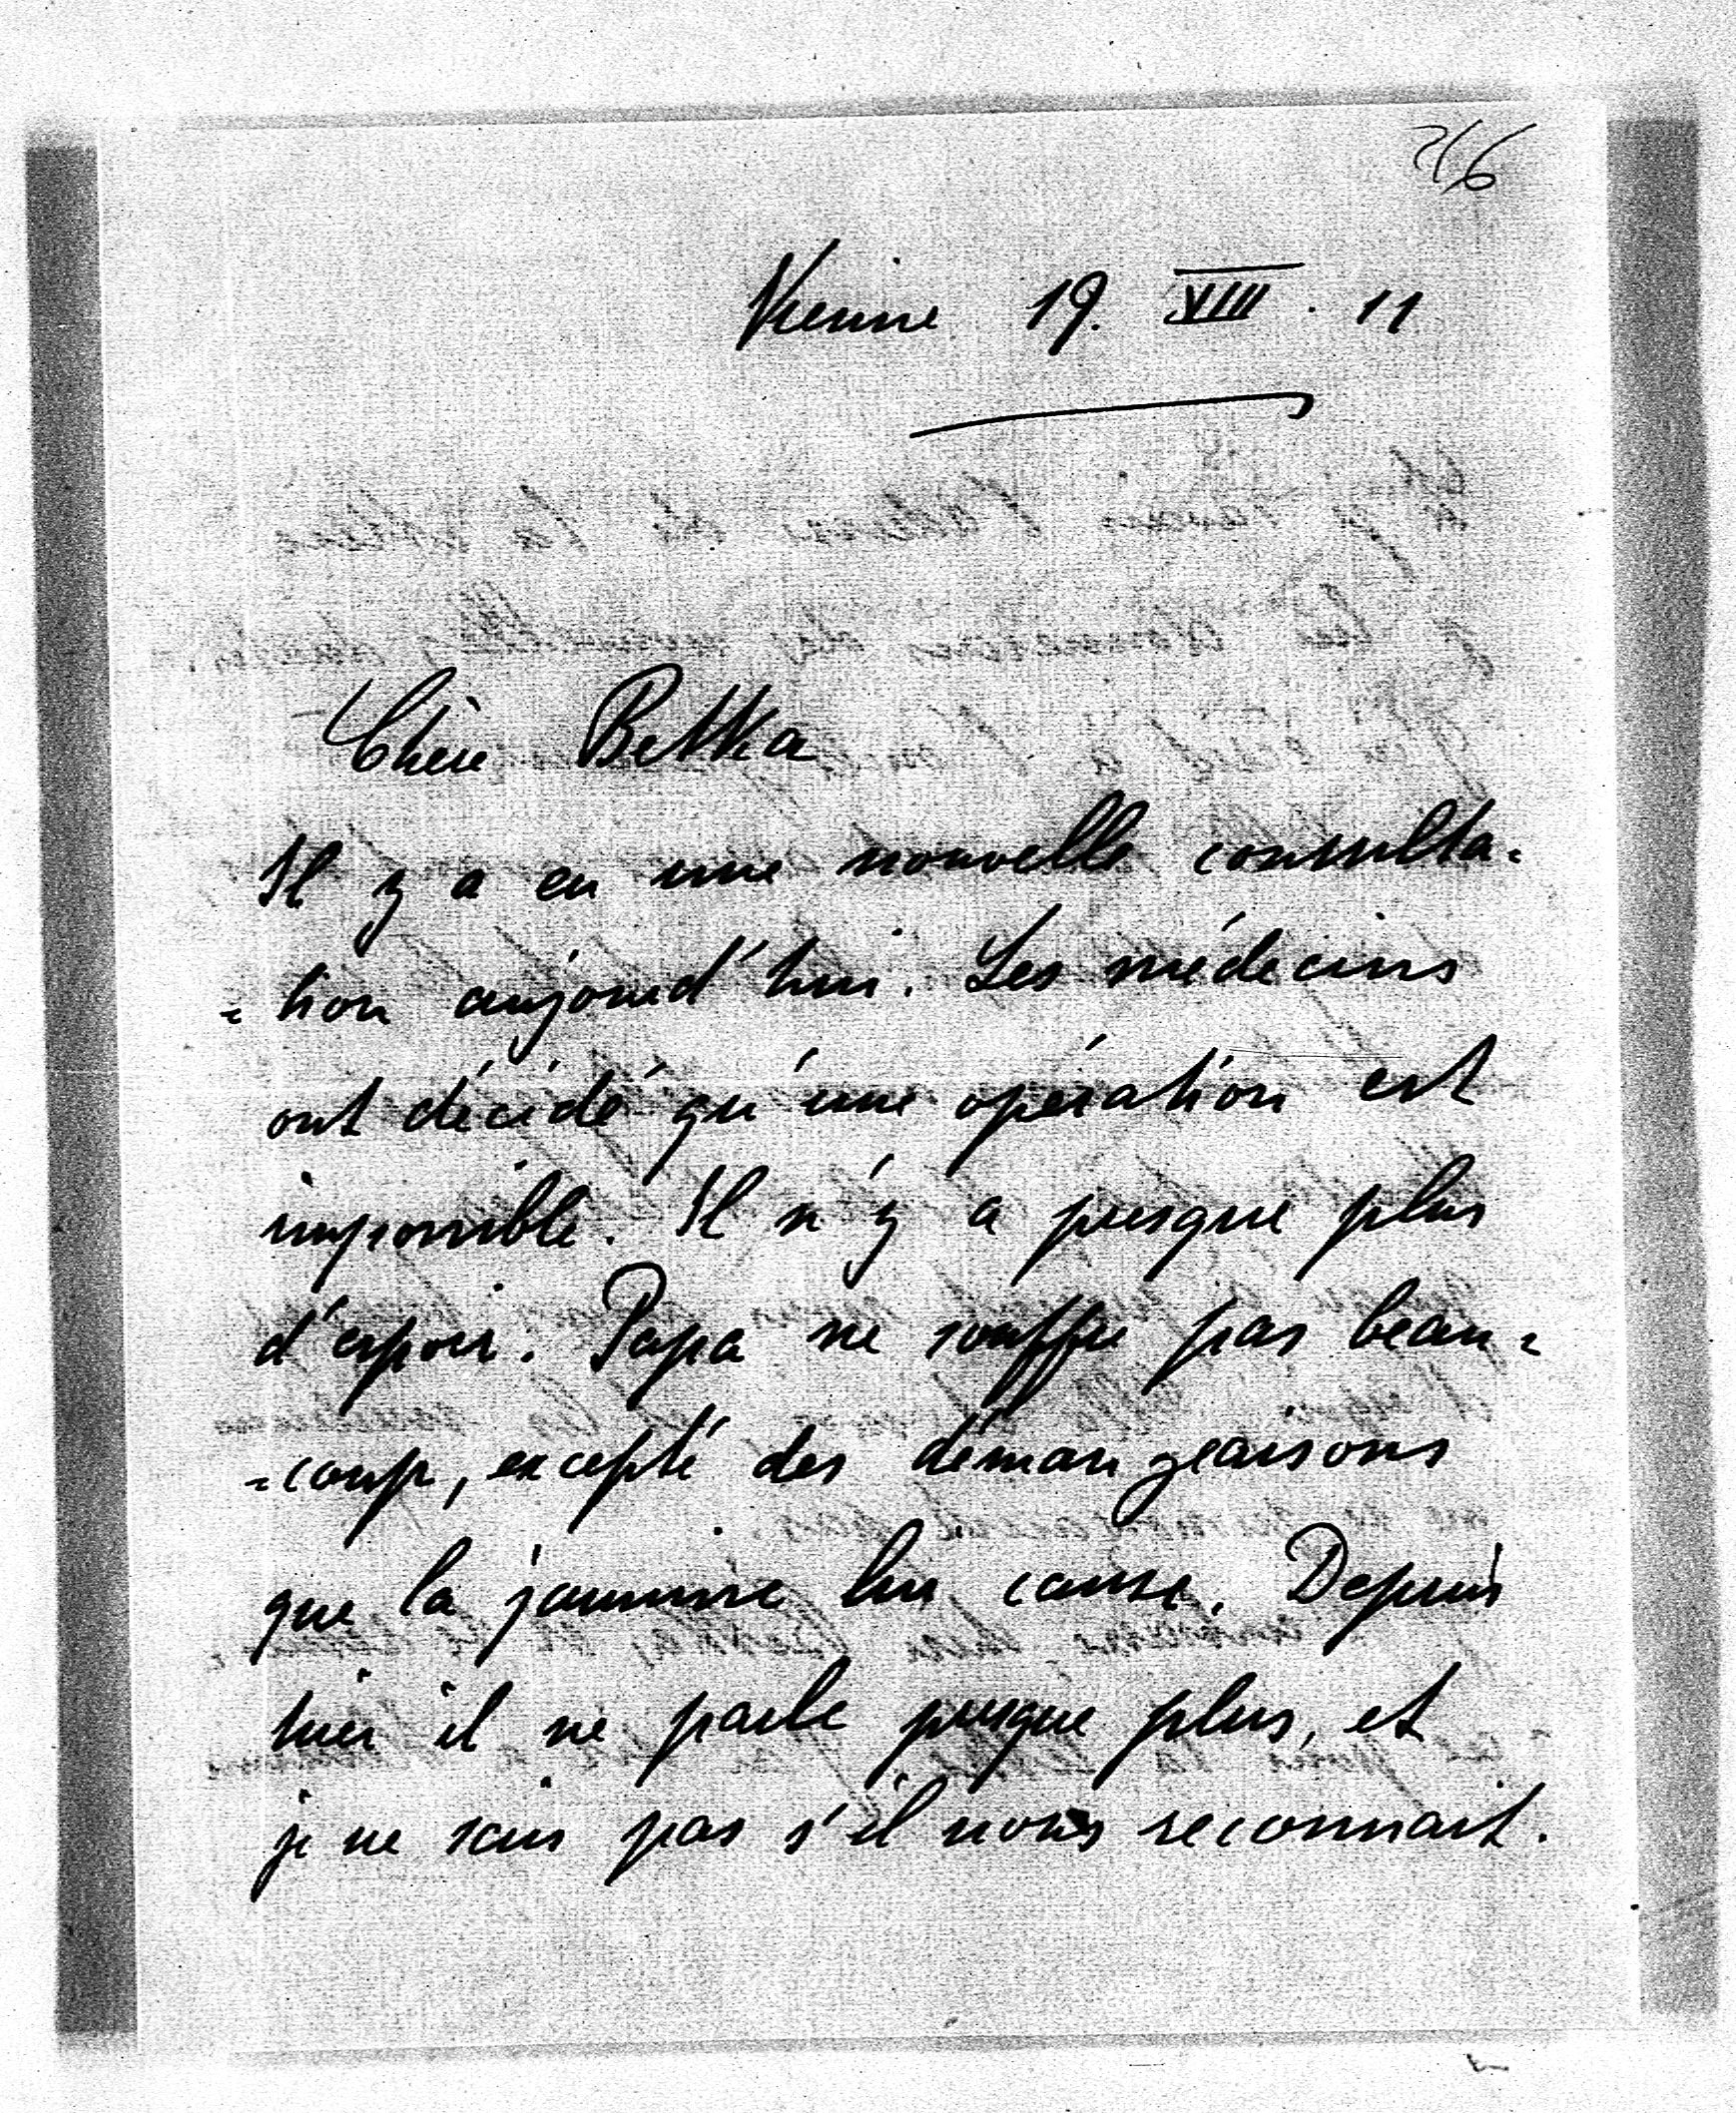 Vienne 19. VIII. 11
Chère Betka
Il y a eu une nouvelle consulta=
=tion aujourd'hui. Les médecins
ont décidé qu'une opération est
impossible. Il n'y a presque plus
d'espoir. Papa ne souffre pas beau=
=coup, excepté des démangeaisons
que la jaunisse lui cause. Depuis
hier il ne parle presque plus, et
je ne sais pas s'il nous reconnait.